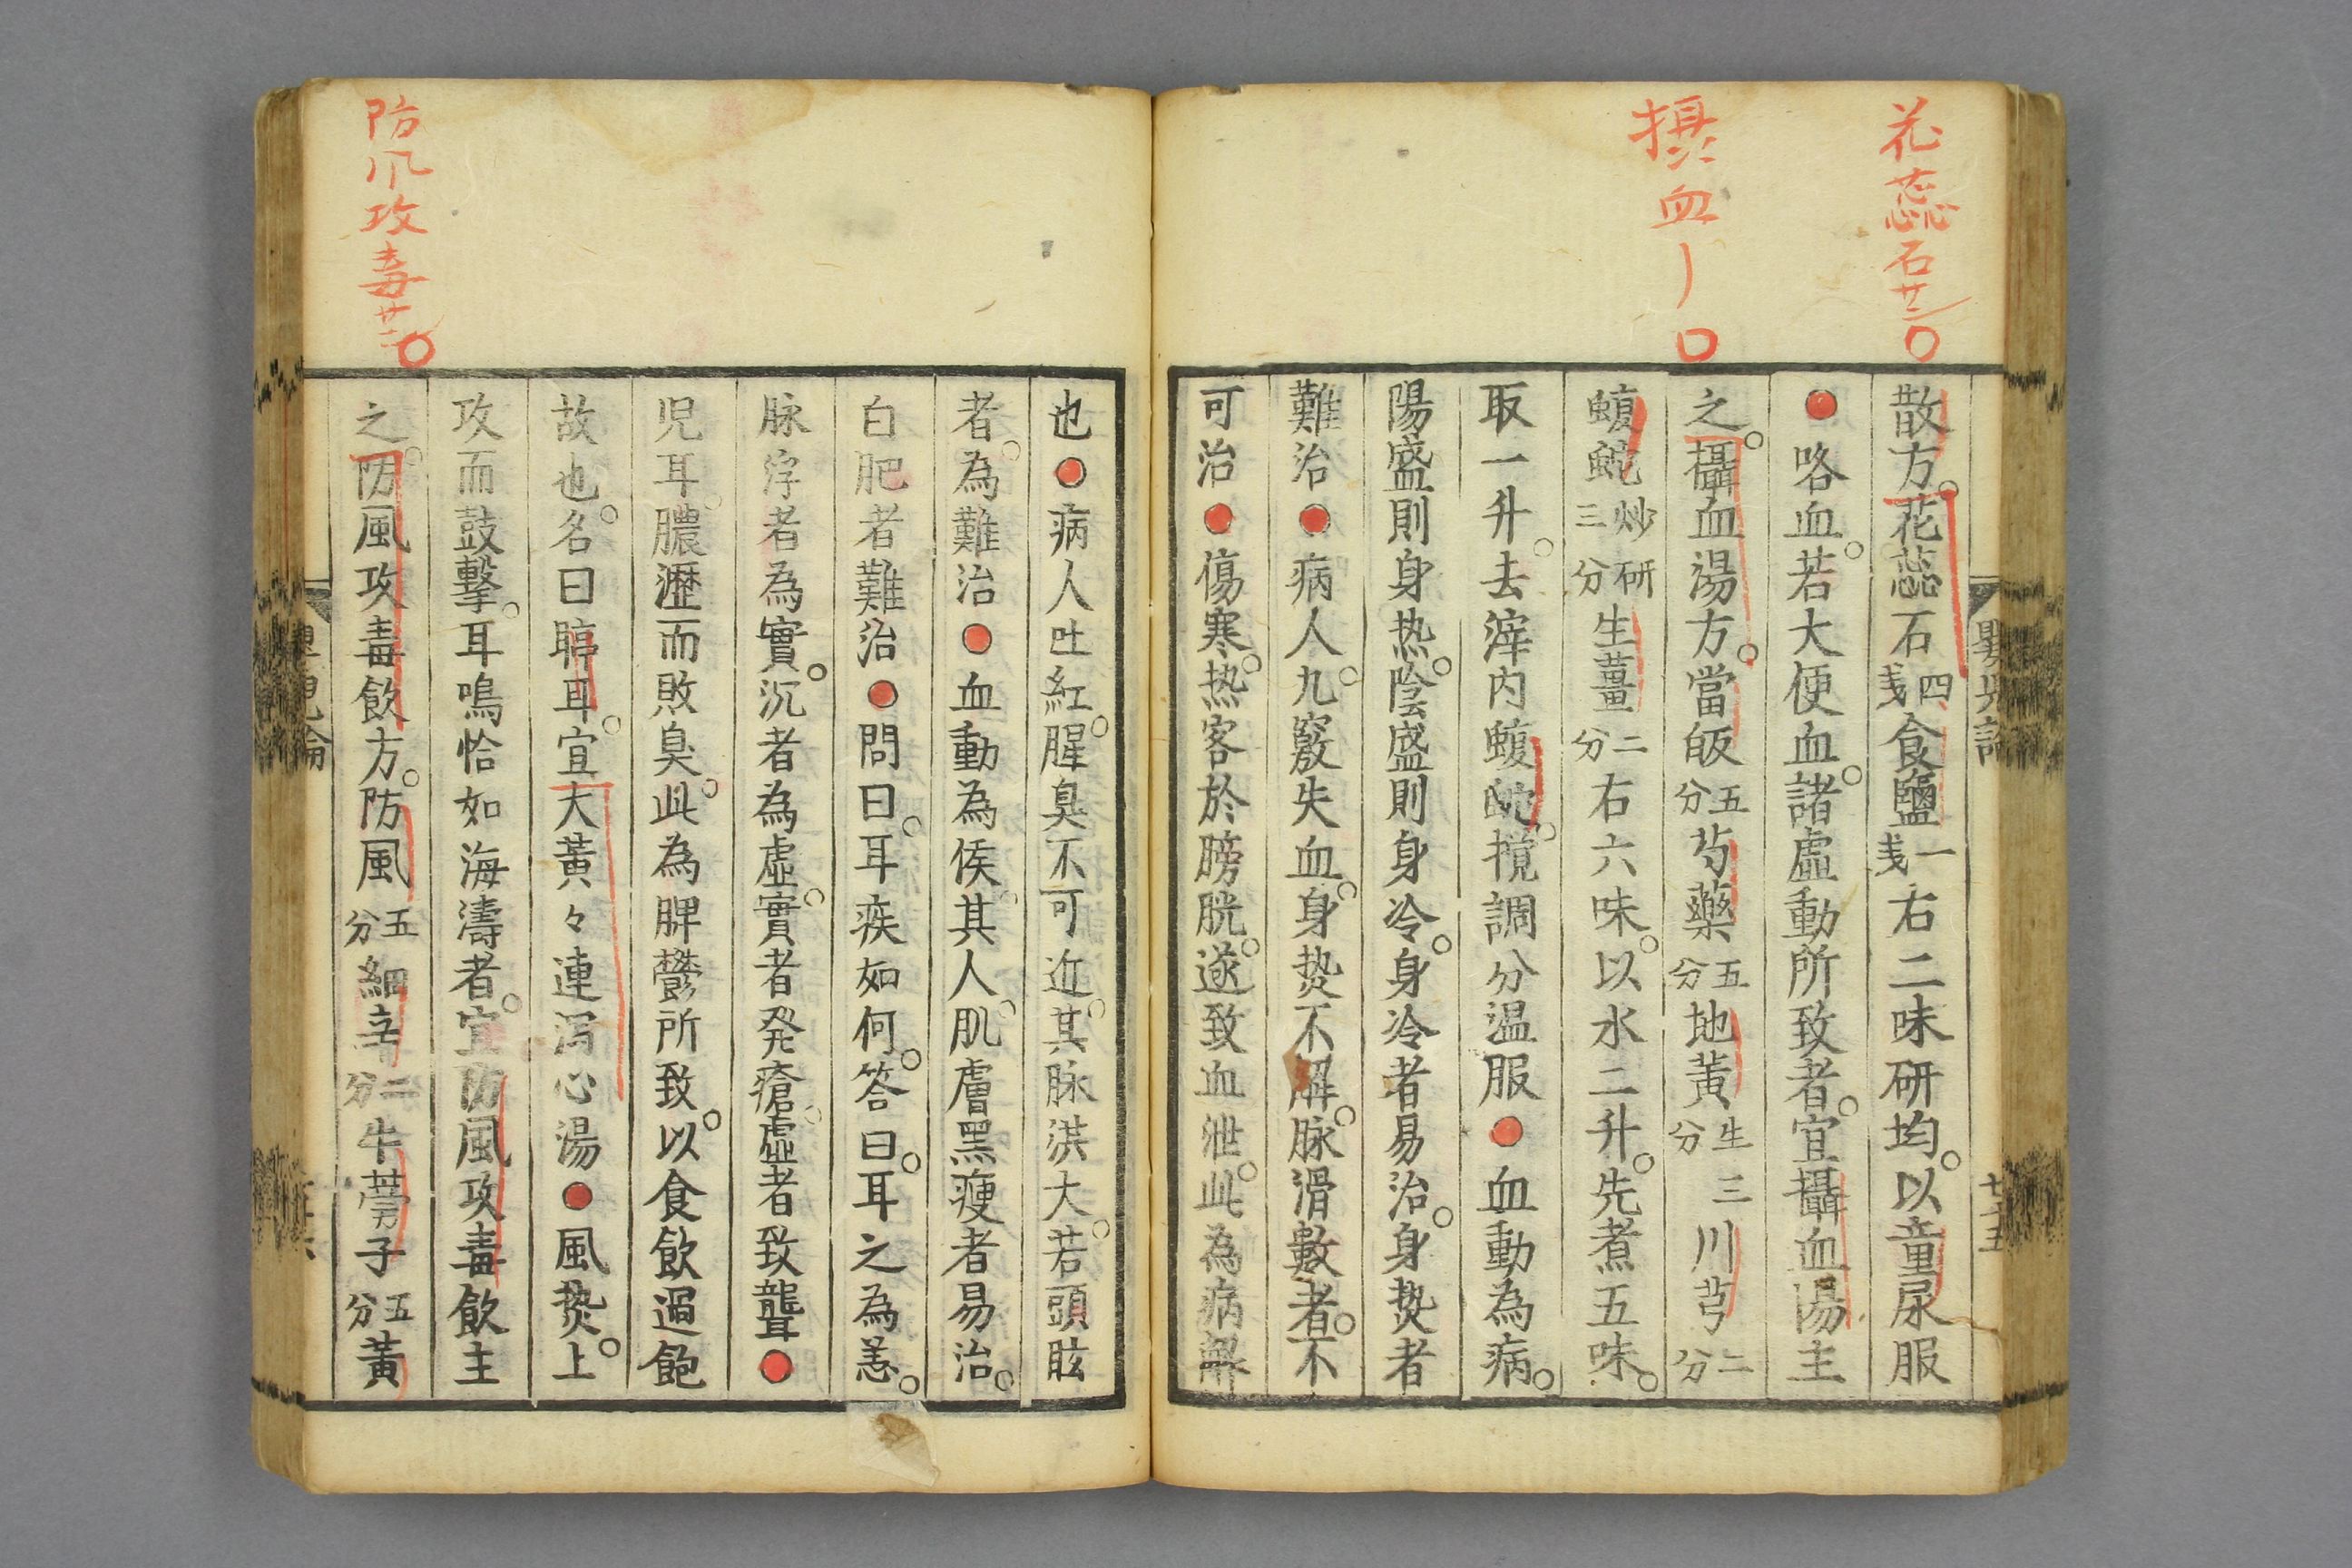 花蕊石廿二〇
摂血〡〇
散方。花蕊石四戋食鹽一戋右二味研均。以童尿服
●咯血。若大便血。諸虛動所致者。宜攝血湯主
之。攝血湯方。當皈五分芍藥五分地黃生三分川芎二分
蝮䖳炒研三分生薑二分右六味。以水二升。先煮五味。
取一升。去滓内蝮䖳。攪調分温服●血動為病。
陽盛則身热。陰盛則身冷。身冷者易治。身熱者
難治●病人。九竅失血。身熱不解。脉滑數者。不
可治●傷寒。热客於膀胱。遂致血泄。此為病解
防风攻毒廿二〇
也●病人吐紅。腥臭不可近。其脉洪大。若頭眩
者。為難治●血動為候。其人。肌膚黑瘦者易治。
白肥者難治●問曰。耳疾如何。答曰。耳之為恙。
脉浮者為實。沉者為虛。實者発瘡。虛者致聾●
児耳。膿瀝而敗臭。此為脾鬱所致。以食飲過飽
故也。名曰聤耳。宜大黃々連瀉心湯●風熱。上
攻而鼓擊。耳鳴恰如海濤者。宜防風攻毒飲主
之。防風攻毒飲方。防風五分細辛二分牛蒡子五分黃